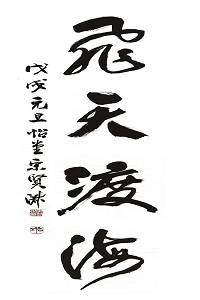 飛天渡海
戊戌元旦怡堂宗賢